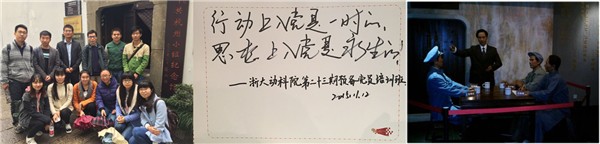 行动上入党是一时的
思想上入党是永生的!
——浙大动科院第二十三期预备党员培训班
2015.11.12
小组纪念馆